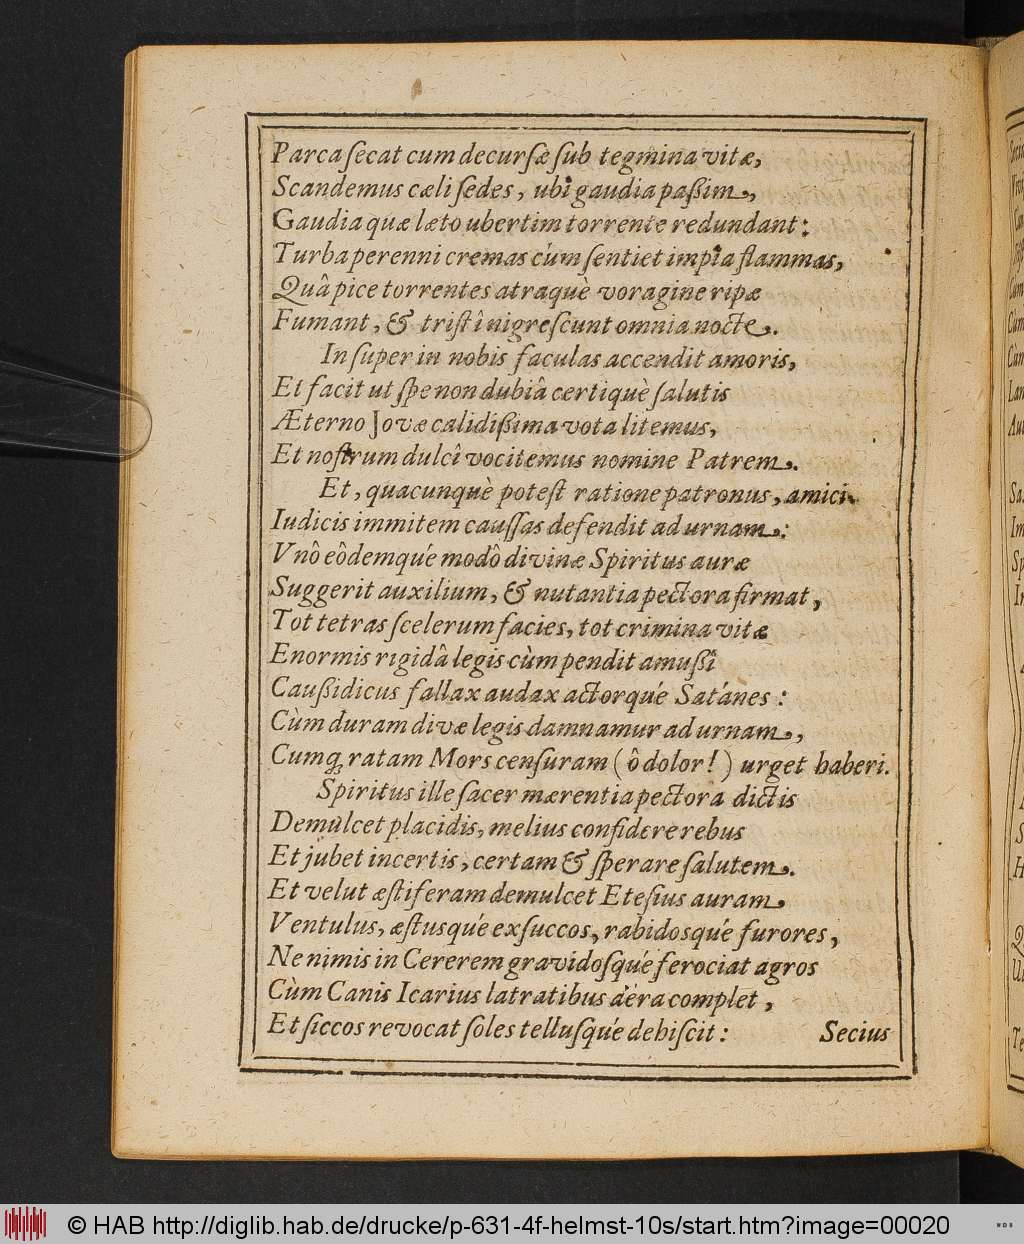 Parca ſecat cum decurſæ ſub tegmina vitæ,
Scandemus cæli ſedes, ubi gaudia paßim,
Gaudia quæ læto ubertim torrente redundant:
Turba perenni cremas cúm ſentiet impia flammas,
Quâ pice torrentes atraquè voragine ripæ
Fumant, & triſtî nigreſcunt omnia nocte.
Inſuper in nobis faculas accendit amoris,
Et facit ut ſpe non dubiâ certiquè ſalutis
Æterno Jovæ calidißima vota litemus,
Et noſtrum dulcî vocitemus nomine Patrem.
Et, quacunquè poteſt ratione patronus, amici
Iudicis immitem cauſſas defendit ad urnam:
Vnô eôdemqué modô divinæ Spiritus auræ
Suggerit auxilium, & nutantia pectora firmat,
Tot tetras ſcelerum facies, tot crimina vitæ
Enormis rigidâ legis cùm pendit amußî
Caußidicus fallax audax actorqué Satánes:
Cùm duram divæ legis damnamur ad urnam,
Cumq; ratam Mors cenſuram (ô dolor!) urget haberi.
Spiritus ille ſacer mærentia pectora dictis
Demulcet placidis, melius confidere rebus
Et jubet incertis, certam & ſperare ſalutem.
Et velut æſtiferam demulcet Eteſius auram
Ventulus, æſtusqué exſuccos, rabidosqué furores,
Ne nimis in Cererem gravidoſqué ferociat agros
Cùm Canis Icarius latratibus aëra complet,
Et ſiccos revocat ſoles telluſqué dehiſcit:
Secius
© HAB http://diglib.hab.de/drucke/p-631-4f-helmst-10s/start.htm?image=00020